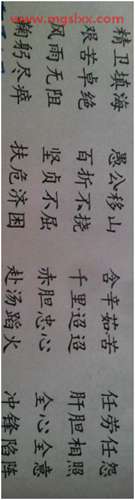 www.mgshxx.com
精卫填海 愚公移山 含辛茹苦 任劳任怨
艰苦卓绝 百折不挠 千里迢迢 肝胆相照
风雨无阻 坚贞不屈 赤胆忠心 全心全意
鞠躬尽瘁 扶危济困 赴汤蹈火 冲锋陷阵